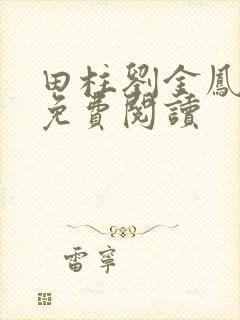 田柱劉金鳳
免費閱讀
雷寧